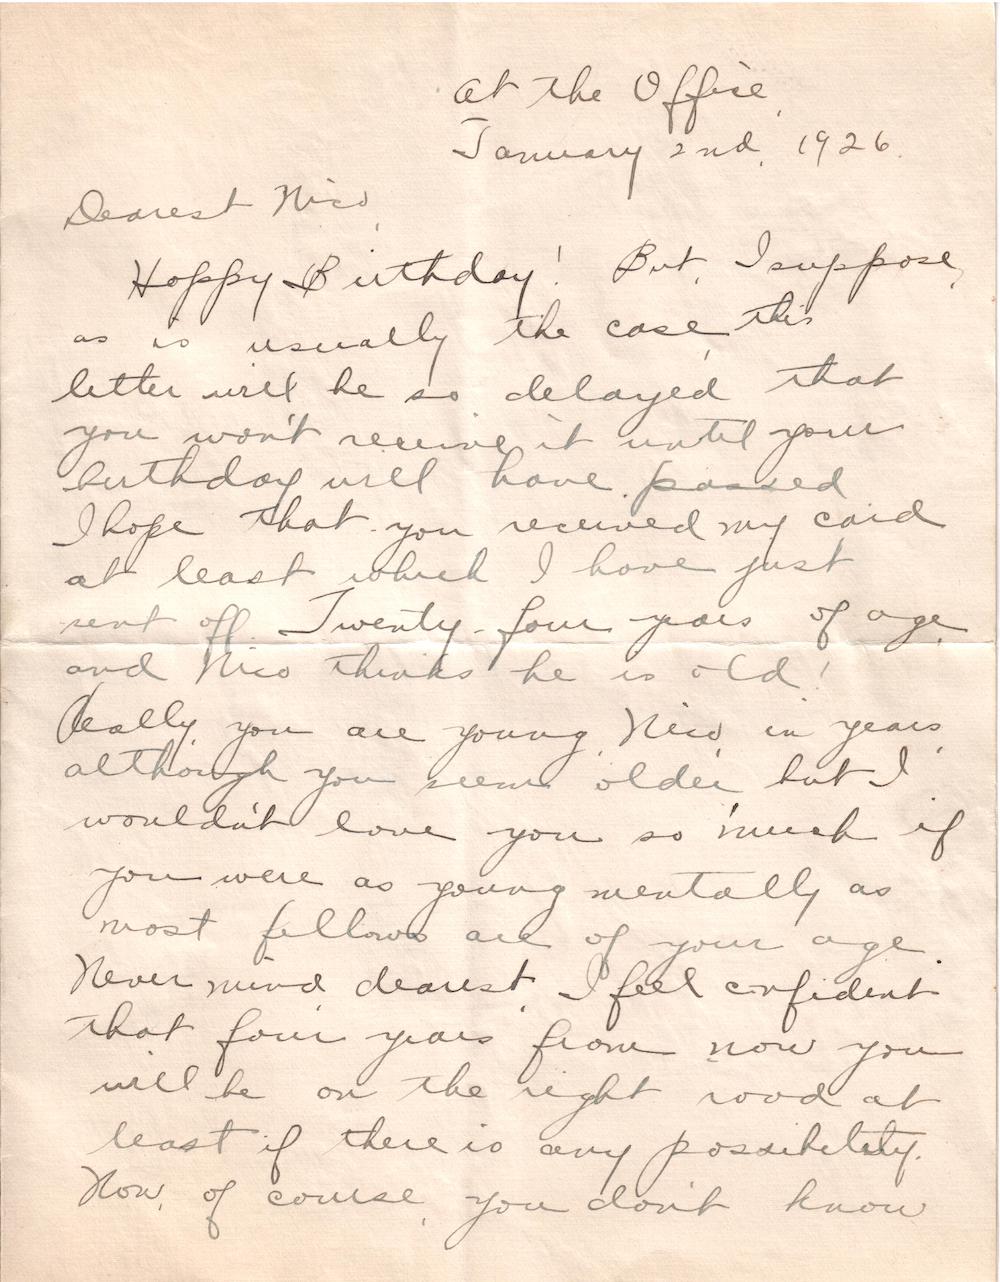 at the Office,
January 2nd, 1926.
Dearest Nico,
Happy Birthday! But, I suppose,
as is usually the case, this
letter will be so delayed that
you won't receive it until your
birthday will have passed
I hope that you received my card
at least which I have just
sent off. Twenty-four years of age,
and Nico thinks he is old!
Really, you are young, Nico, in years,
although you seem older but I
wouldn't love you so much if
you were as young mentally as
most fellows are of your age.
Never mind dearest, I feel confident
that four years from now you
will be on the right road at
least if there is any possibility.
Now, of course, you don't know